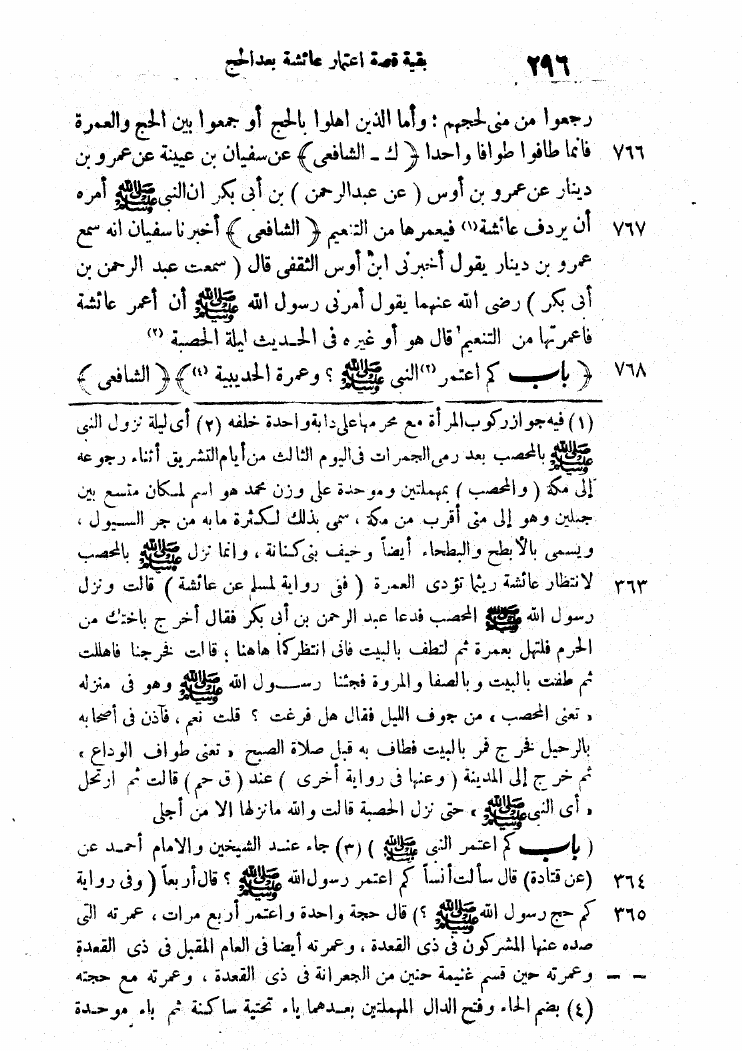 ٢٩٦ بقية قصة اعتمار عائشة بعد الحج
رجعوا من منى لحجهم ؛ وأما الذين اهلوا بالحج أو جمعوا بين الحج والعمرة
٧٦٦ فانما طافوا طوافا واحدا ﴿ ك ـ الشافعى ﴾ عن سفيان بن عيينة عن عمرو بن
دينار عن عمرو بن أوس ( عن عبدالرحمن ) بن أبى بكر ان النبى ﷺ أمره
٧٦٧ أن يردف عائشة (١) فيعمرها من التنعيم ﴿ الشافعى ﴾ أخبرنا سفيان انه سمع
عمرو بن دينار يقول أخبرنى ابن أوس الثقفى قال ( سمعت عبد الرحمن بن
أبى بكر ) رضى الله عنهما يقول أمرنى رسول الله ﷺ أن أعمر عائشة
فاعمرتها من التنعيم قال هو أو غيره فى الحديث ليلة الحصبة (٢)
٧٦٨ ﴿ باب كم اعتمر (٣) النبى ﷺ ؟ وعمرة الحديبية (٤) ﴾ ﴿ الشافعى ﴾
(١) فيه جواز ركوب المرأة مع محرمها على دابة واحدة خلفه (٢) أى ليلة نزول النبى
ﷺ بالمحصب بعد رمى الجمرات فى اليوم الثالث من أيام التشريق أثناء رجوعه
إلى مكة ( والمحصب ) بمهملتين وموحدة على وزن محمد هو اسم لمكان متسع بين
جبلين وهو إلى منى أقرب من مكة ، سمى بذلك لكثرة مابه من جر السيول ،
ويسمى بالأبطح والبطحاء أيضاً وخيف بنى كنانة ، وانما نزل ﷺ بالمحصب
٣٦٣ لانتظار عائشة ريثما تؤدى العمرة ( ففى رواية لمسلم عن عائشة ) قالت ونزل
رسول الله ﷺ المحصب فدعا عبد الرحمن بن أبى بكر فقال أخرج باختك من
الحرم فلتهل بعمرة ثم لتطف بالبيت فانى انتظركما هاهنا ؛ قالت فخرجنا فاهللت
ثم طفت بالبيت وبالصفا والمروة فجئنا رسول الله ﷺ وهو فى منزله
« تعنى المحصب » من جوف الليل فقال هل فرغت ؟ قلت نعم ، فآذن فى أصحابه
بالرحيل فخرج فمر بالبيت فطاف به قبل صلاة الصبح « تعنى طواف الوداع »
ثم خرج إلى المدينة ( وعنها فى رواية أخرى ) عند ( ق حم ) قالت ثم ارتحل
« أى النبى ﷺ » حتى نزل الحصبة قالت والله مانزلها الا من أجلى
( باب كم اعتمر النبى ﷺ ) (٣) جاء عند الشيخين والامام أحمد عن
٣٦٤ (عن قتادة) قال سألت أنساً كم اعتمر رسول الله ﷺ ؟ قال أربعاً ( وفى رواية
٣٦٥ كم حج رسول الله ﷺ ؟) قال حجة واحدة واعتمر أربع مرات ، عمرته التى
صده عنها المشركون فى ذى القعدة ، وعمرته أيضا فى العام المقبل فى ذى القعدة
- - وعمرته حين قسم غنيمة حنين من الجعرانة فى ذى القعدة ، وعمرته مع حجته
(٤) بضم الحاء وفتح الدال المهملتين بعدهما ياء تحتية ساكنة ثم باء موحدة